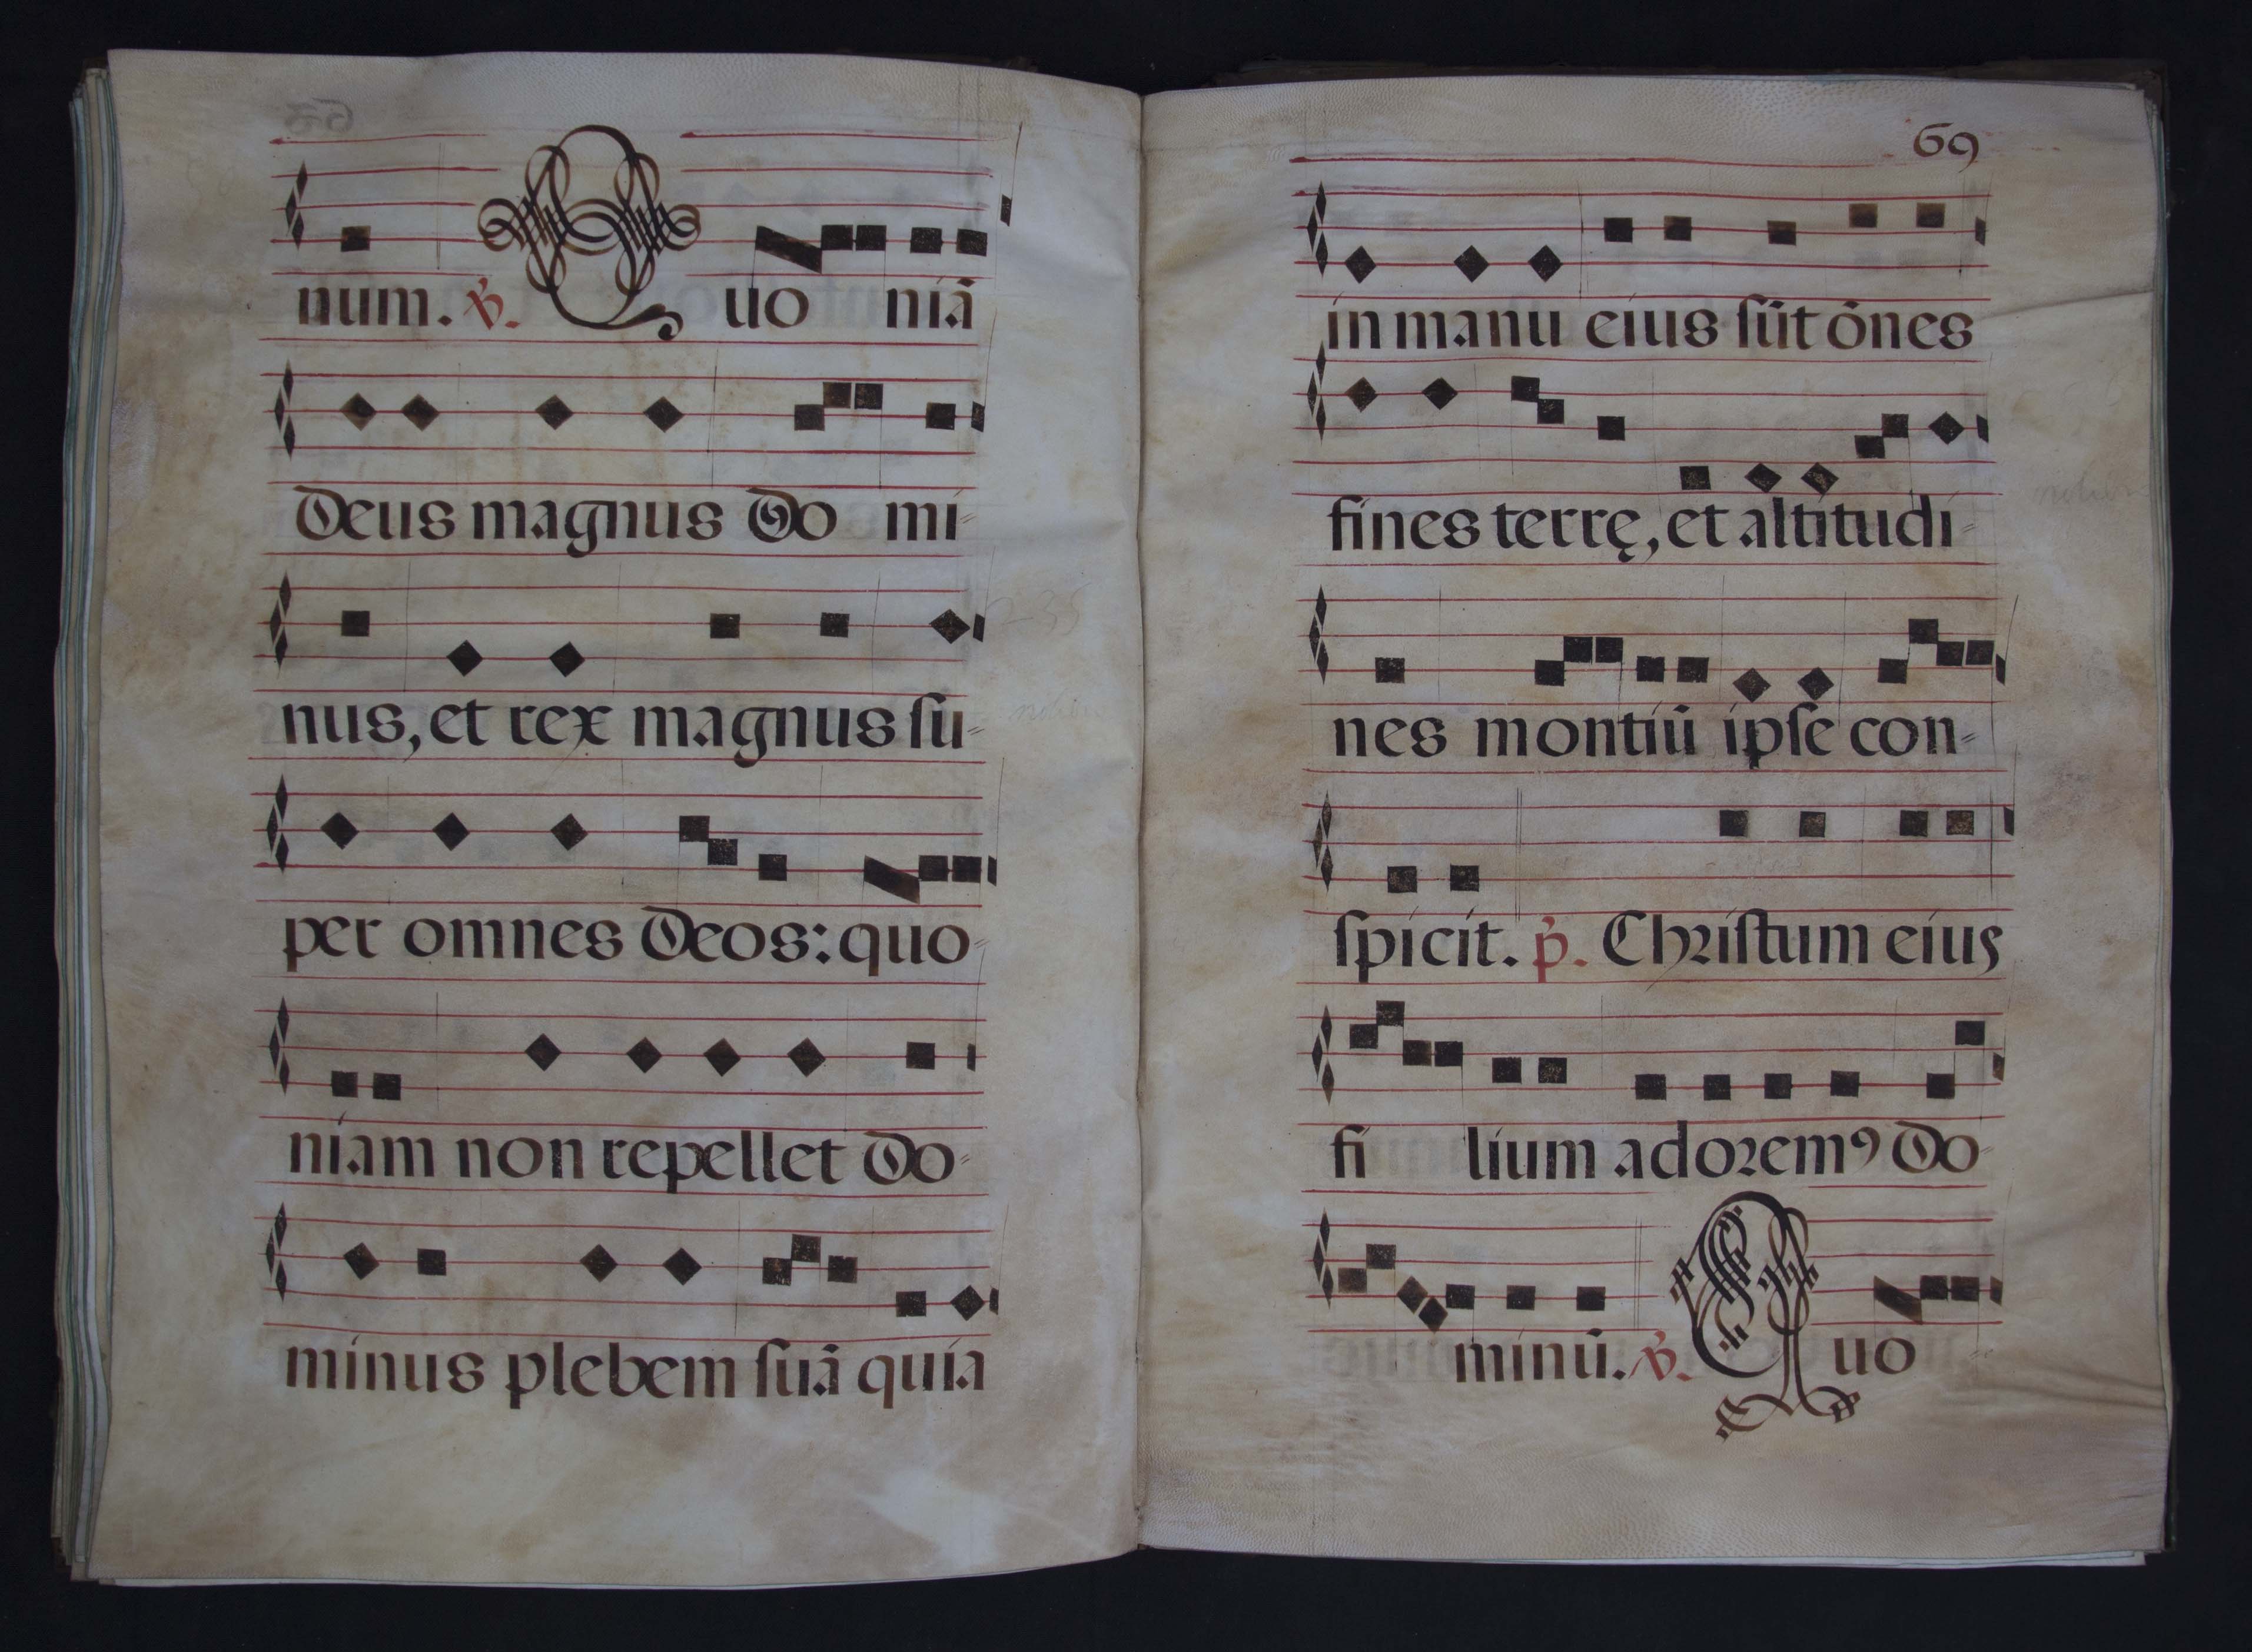 num. ℣. Quo niā
Deus magnus Do mi-
nus, et rex magnus ſu-
per omnes Deos: quo-
niam non repellet Do-
minus plebem ſuā quia
69
in manu eius ſūt ōnes
fines terrę, et altitudi-
nes montiū ipſe con-
ſpicit. p̄. Chriſtum eius
fi lium adoremꝰ Do-
minū. ℣. Quo-